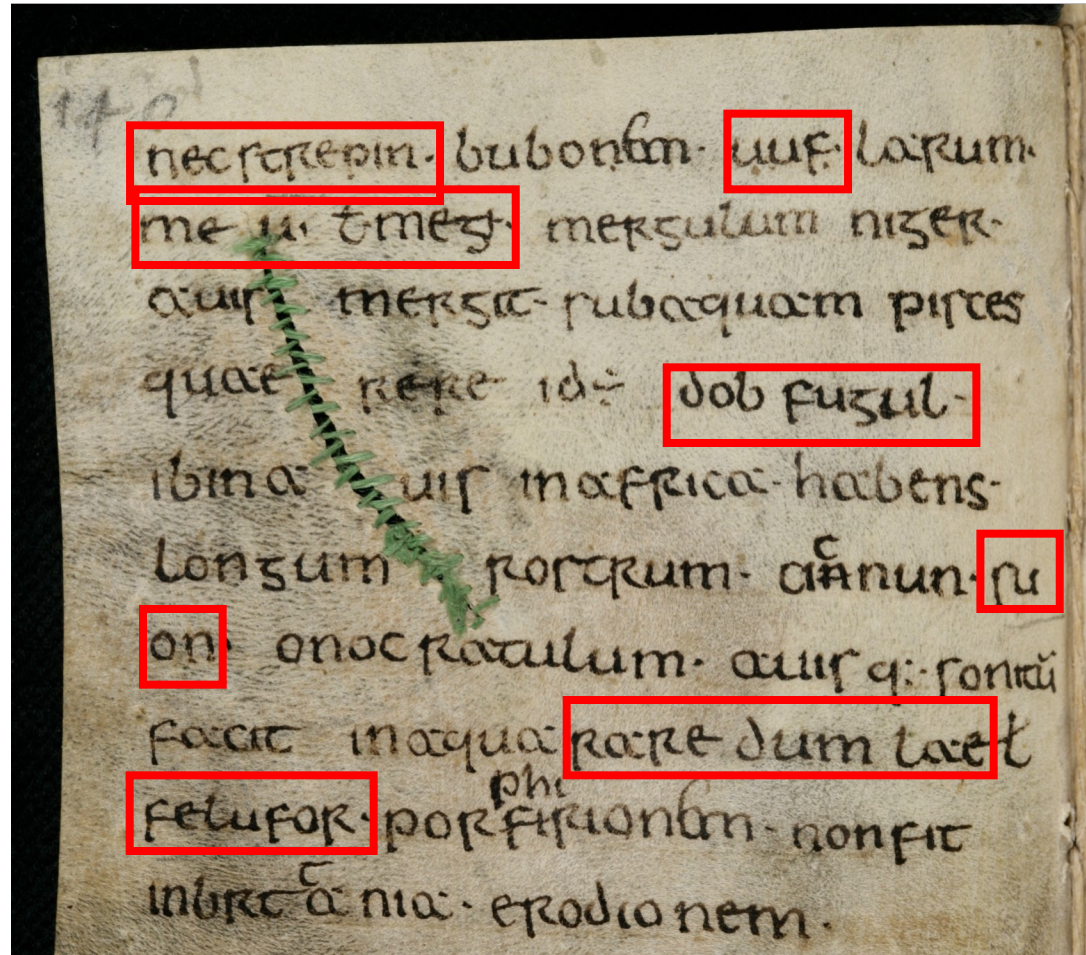 necstrepin· bubonem· uuf· larum·
me u· ł meg· mergulum niger·
auis mergit· subaquam pisces
quae rere id÷ dob fugul·
ibin a uis inafrica· habens·
longum rostrum· su
on· onocratulum· auis q:· sonitū
facit inaqua rare dum lae ł
phi
felufor· porfirionem· nonfit
inbrit a nia· erodionem·